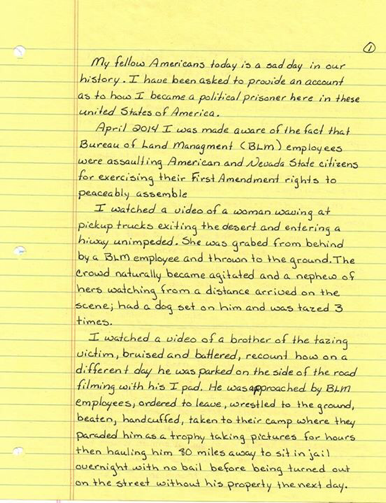 ①
My fellow Americans today is a sad day in our
history. I have been asked to provide an account
as to how I became a political prisoner here in these
united States of America.
April 2014 I was made aware of the fact that
Bureau of Land Managment (BLM) employees
were assaulting American and Nevada State citizens
for exercising their First Amendment rights to
peaceably assemble
I watched a video of a woman waving at
pickup trucks exiting the desert and entering a
hiway unimpeded. She was grabed from behind
by a BLM employee and thrown to the ground. The
crowd naturally became agitated and a nephew of
hers watching from a distance arrived on the
scene; had a dog set on him and was tazed 3
times.
I watched a video of a brother of the tazing
victim, bruised and battered, recount how on a
different day he was parked on the side of the road
filming with his I pad. He was approached by BLM
employees, ordered to leave, wrestled to the ground,
beaten, handcuffed, taken to their camp where they
paraded him as a trophy taking pictures for hours
then hauling him 80 miles away to sit in jail
overnight with no bail before being turned out
on the street without his property the next day.